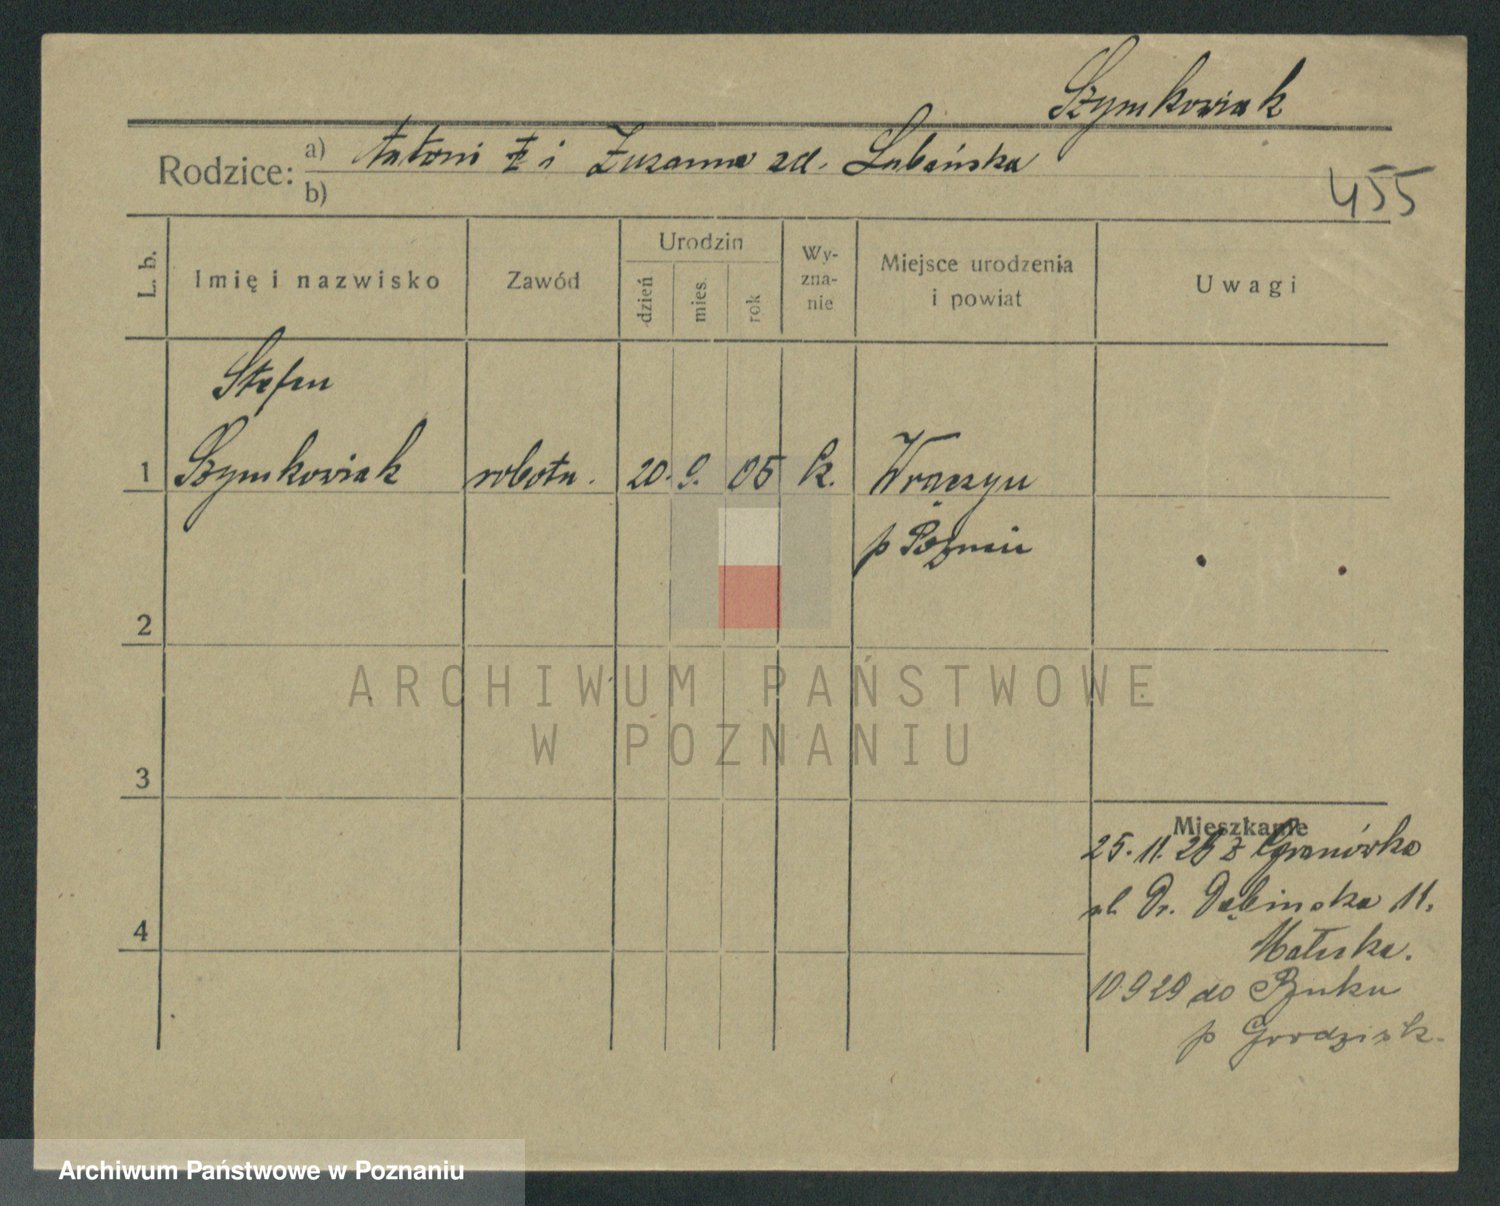 Szymkowiak
Rodzice: a) Antoni i Zuzanna zd. Lubańska
b)
455
L. b.
Imię i nazwisko
Zawód
Urodzin
dzień
mies.
rok
Wy-
zna-
nie
Miejsce urodzenia
i powiat
Uwagi
Stefan
1 Szymkowiak robotn. 20. 9. 05 k. Wrączyn
p Poznań
2
3
4
ARCHIWUM PAŃSTWOWE
W POZNANIU
Mieszkanie
25. 11. 26 z Granówka
Dr. Dębinska 11.
10 9 29 do Buku
p Grodzisk.
Archiwum Państwowe w Poznaniu